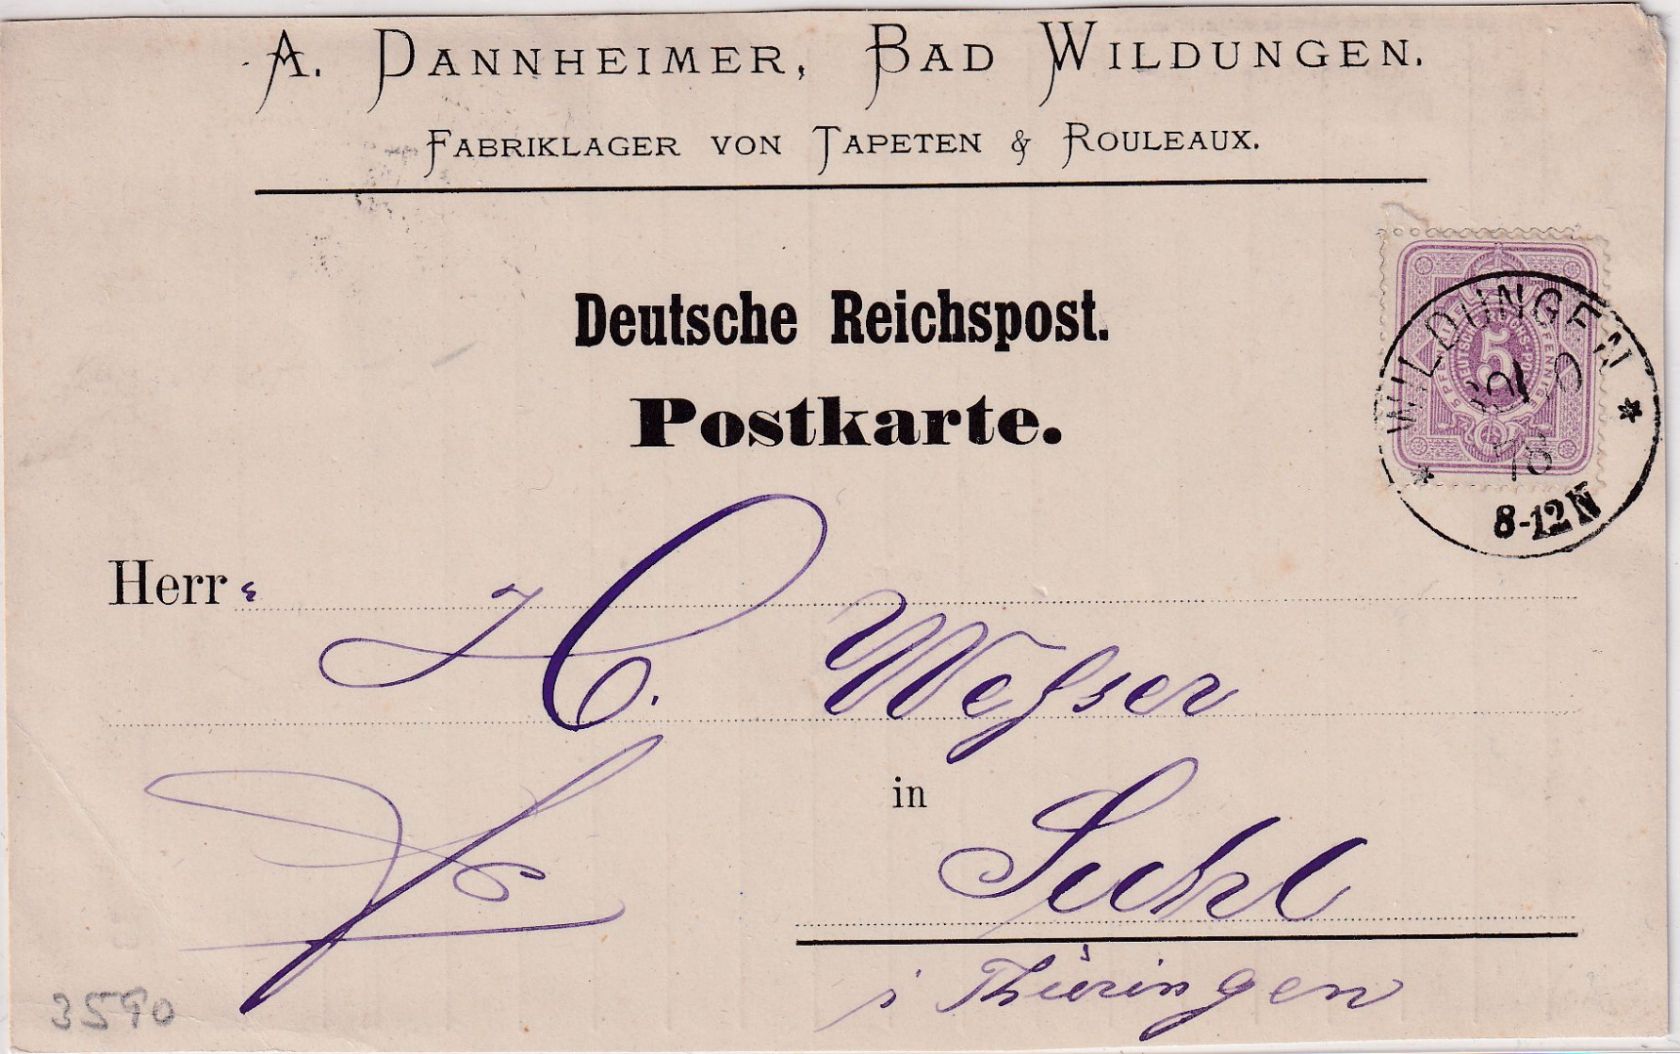 A. DANNHEIMER, BAD WILDUNGEN.
FABRIKLAGER VON TAPETEN & ROULEAUX.
Deutsche Reichspost.
Postkarte.
5
WILDUNGEN
78
8-12N
Herr
H. Wesser
in Suhl
i Thüringen
3590